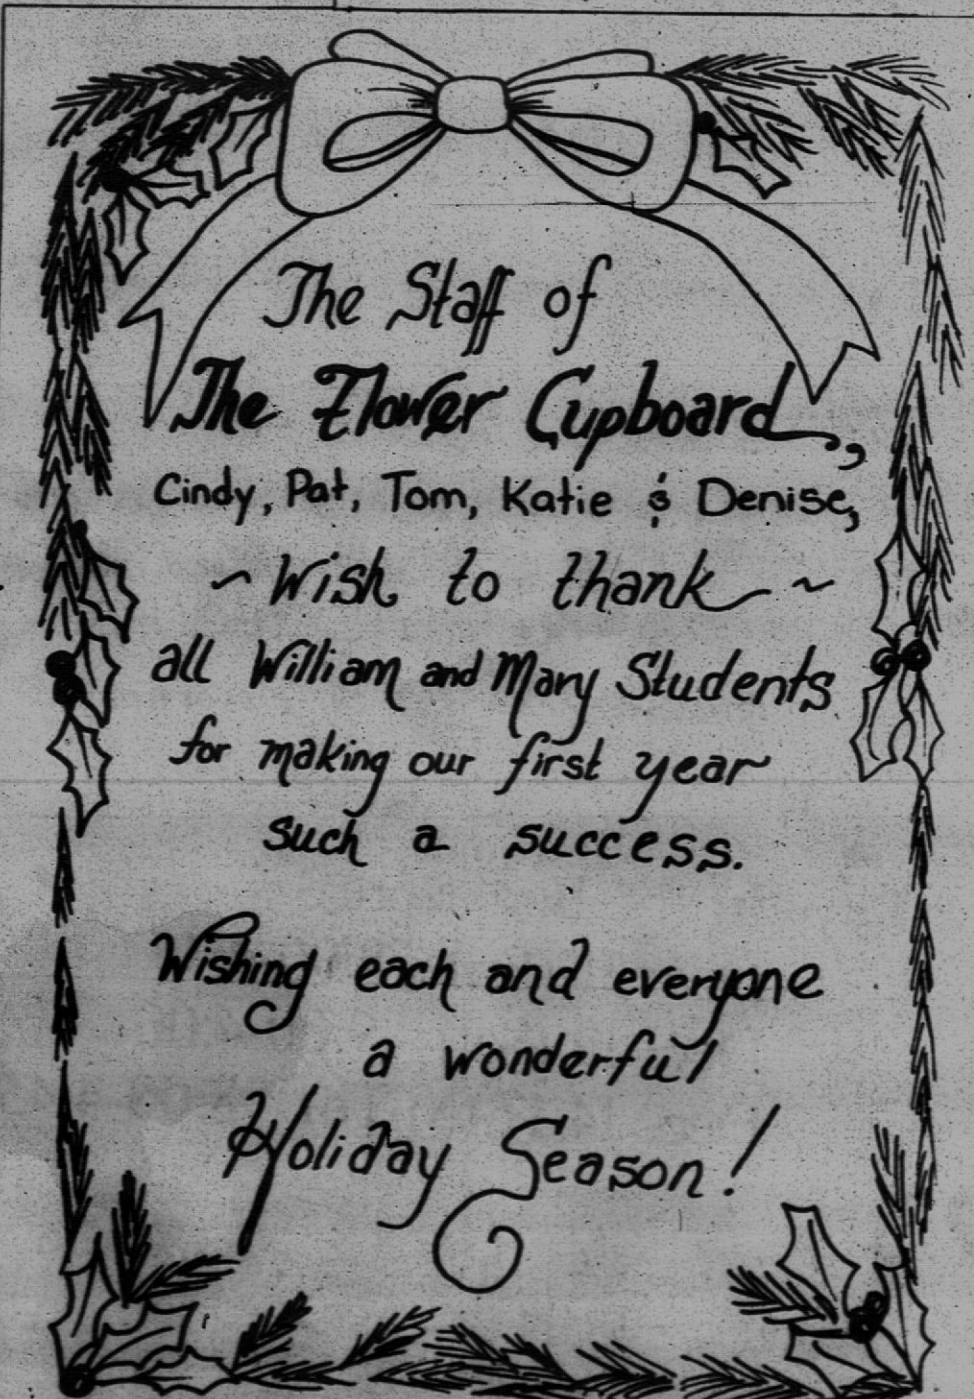 The Staff of
The Flower Cupboard,
Cindy, Pat, Tom, Katie & Denise,
~ Wish to thank ~
all William and Mary Students
for making our first year
such a success.
Wishing each and everyone
a wonderful
Holiday Season!